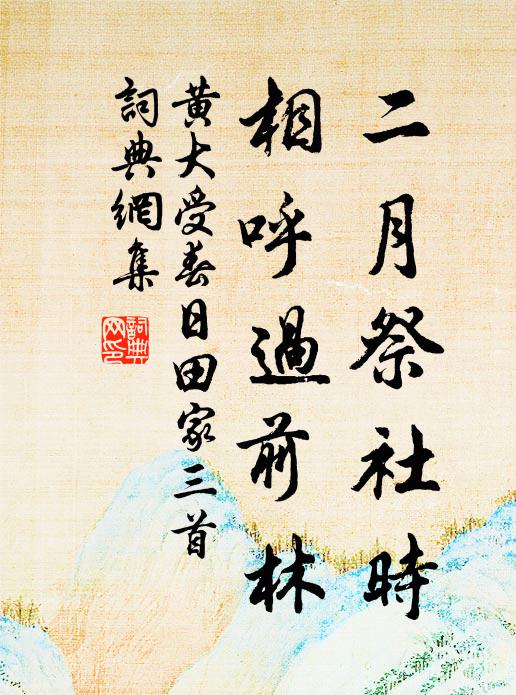 二月祭社時
相呼過前林
黄大受春日田家三首
詞典網集
詞典网印